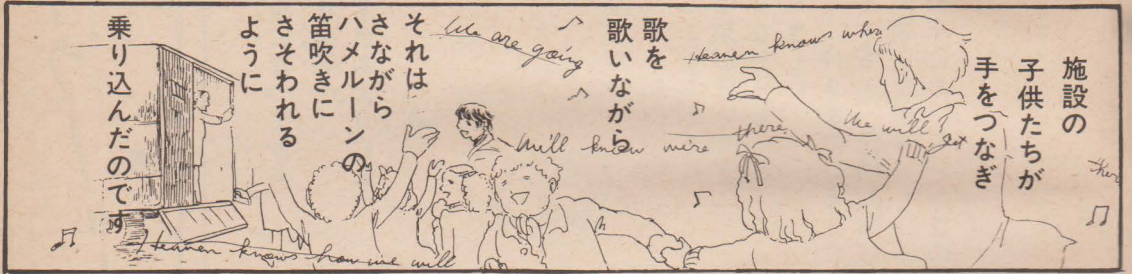 施設の
子供たちが
手をつなぎ
歌を
歌いながら
それは
さながら
ハメルーンの
笛吹きに
さそわれる
ように
乗り込んだのです
We are going
Heaven knows where
there
We will get
Will know we're
ther
Heaven knows how we will